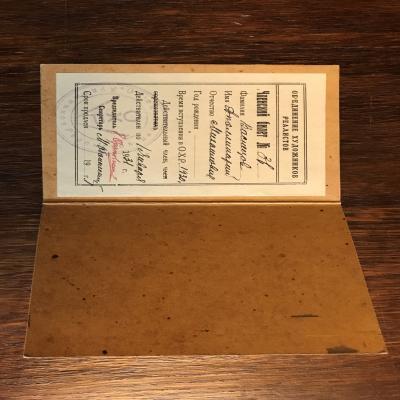 ОБЪЕДИНЕНИЕ ХУДОЖНИКОВ
РЕАЛИСТОВ
Членский билет №
Фамилия Васнецов
Имя Апполинарий
Отчество Михайлович
Год рождения
Время вступления в О.Х.Р. 1930.
Действительный член,
Действителен по 1 Января
1931 г.
Председатель
Секретарь
Срок продлен 19 г.